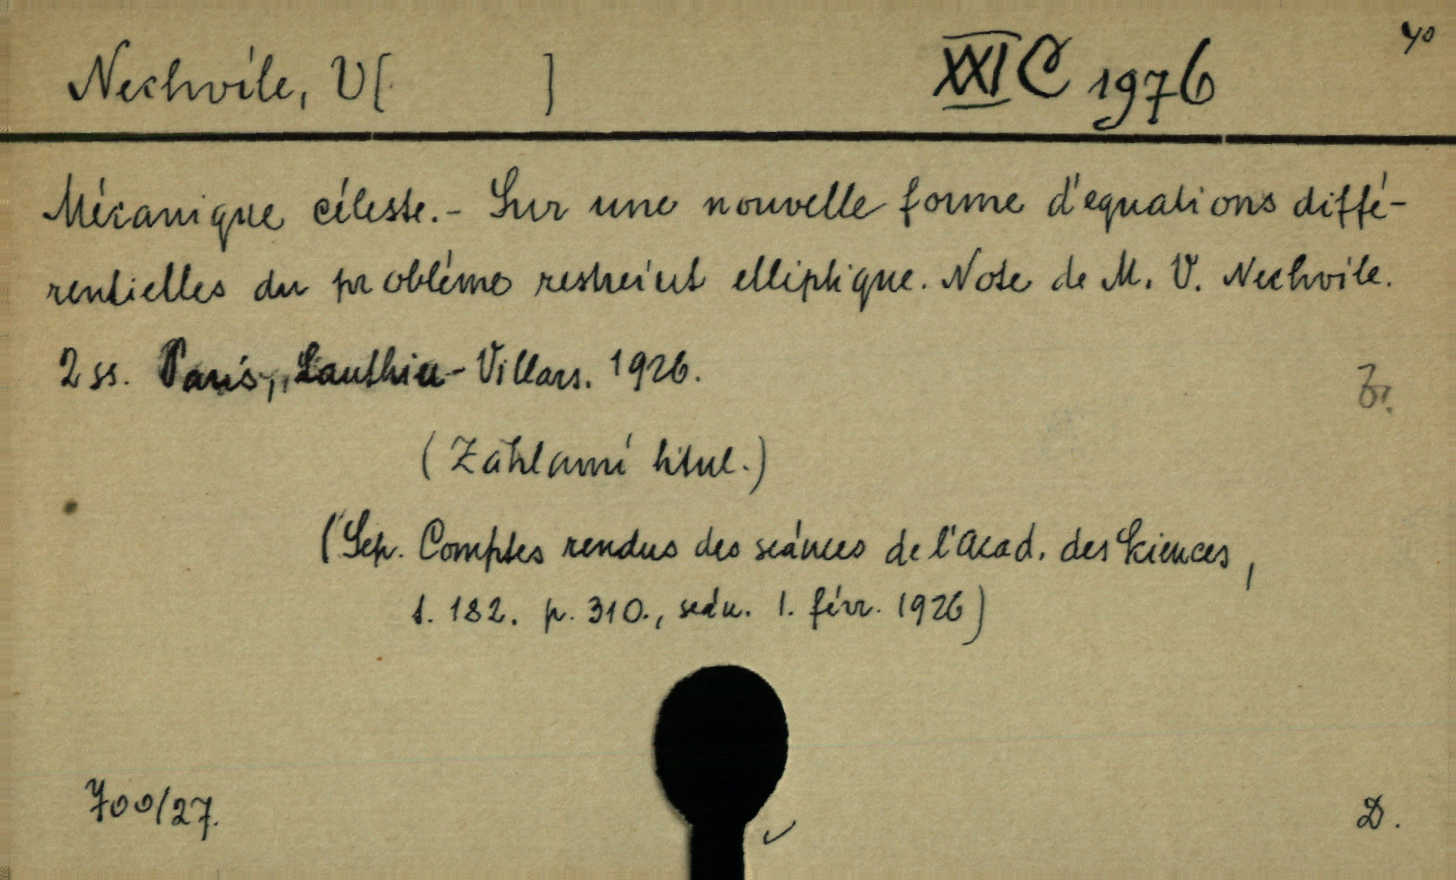 Nechvíle, V[ ] XXI C 1976 40
Mécanique céleste.- Sur une nouvelle forme d'équations diffé-
rentielles du problème restreint elliptique. Note de M. V. Nechvíle.
2 ss. Paris, Gauthier-Villars. 1926.
(Záhlavní titul.)
(Sep. Comptes rendus des séances de l'Acad. des Sciences,
t. 182. p. 310., séan. 1. févr. 1926)
700/27. D.